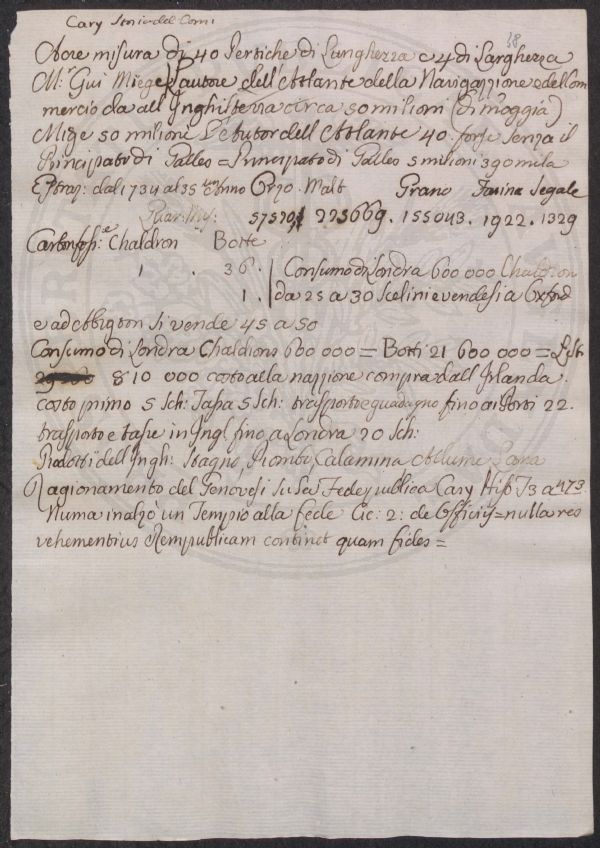 Cary Storia del Com:
38
Acre misura di 40 Pertiche di Lunghezza e 4 di Larghezza
M: Gui Miege l'autore dell'Atlante della Navigazzione e del Com
mercio da all'Inghilterra circa 50 milioni (di moggia)
Miege 50 milioni L'Autor dell'Atlante 40 forse senza il
Principato di Galles = Principato di Galles 5 milioni 390 mila
Esporaz: dal 1734 al 35 Anno Orzo Malt Grano Farina Segale
Quar: Mis: 57520, 223669. 155043. 1922. 1329
Carbon foss:e Chaldron Botte
1 . 36. Consumo di Londra 600 000 Chaldron
1. da 25 a 30 Scelini e vendesi a Oxford
e ad Abigton si vende 45 a 50
Consumo di Londra Chaldrons 600 000 = Botti 21 600 000 = L. St.
810 000 costo alla nazzione compra dall'Irlanda.
costo primo 5 Sch: Tassa 5 Sch: trasporto e guadagno fino ai Porti 22.
trasporto e tasse in Ingl fino a Londra 20 Sch:
Prodotti dell'Ingh: Stagno Piombo Calamina Allume Lana
Ragionamento del Genovesi su la Fede publica Cary Hist T3 a 473
Numa inalzo un Tempio alla fede Cic: 2: de Officijs = nulla res
vehementius Rempublicam continet quam fides =